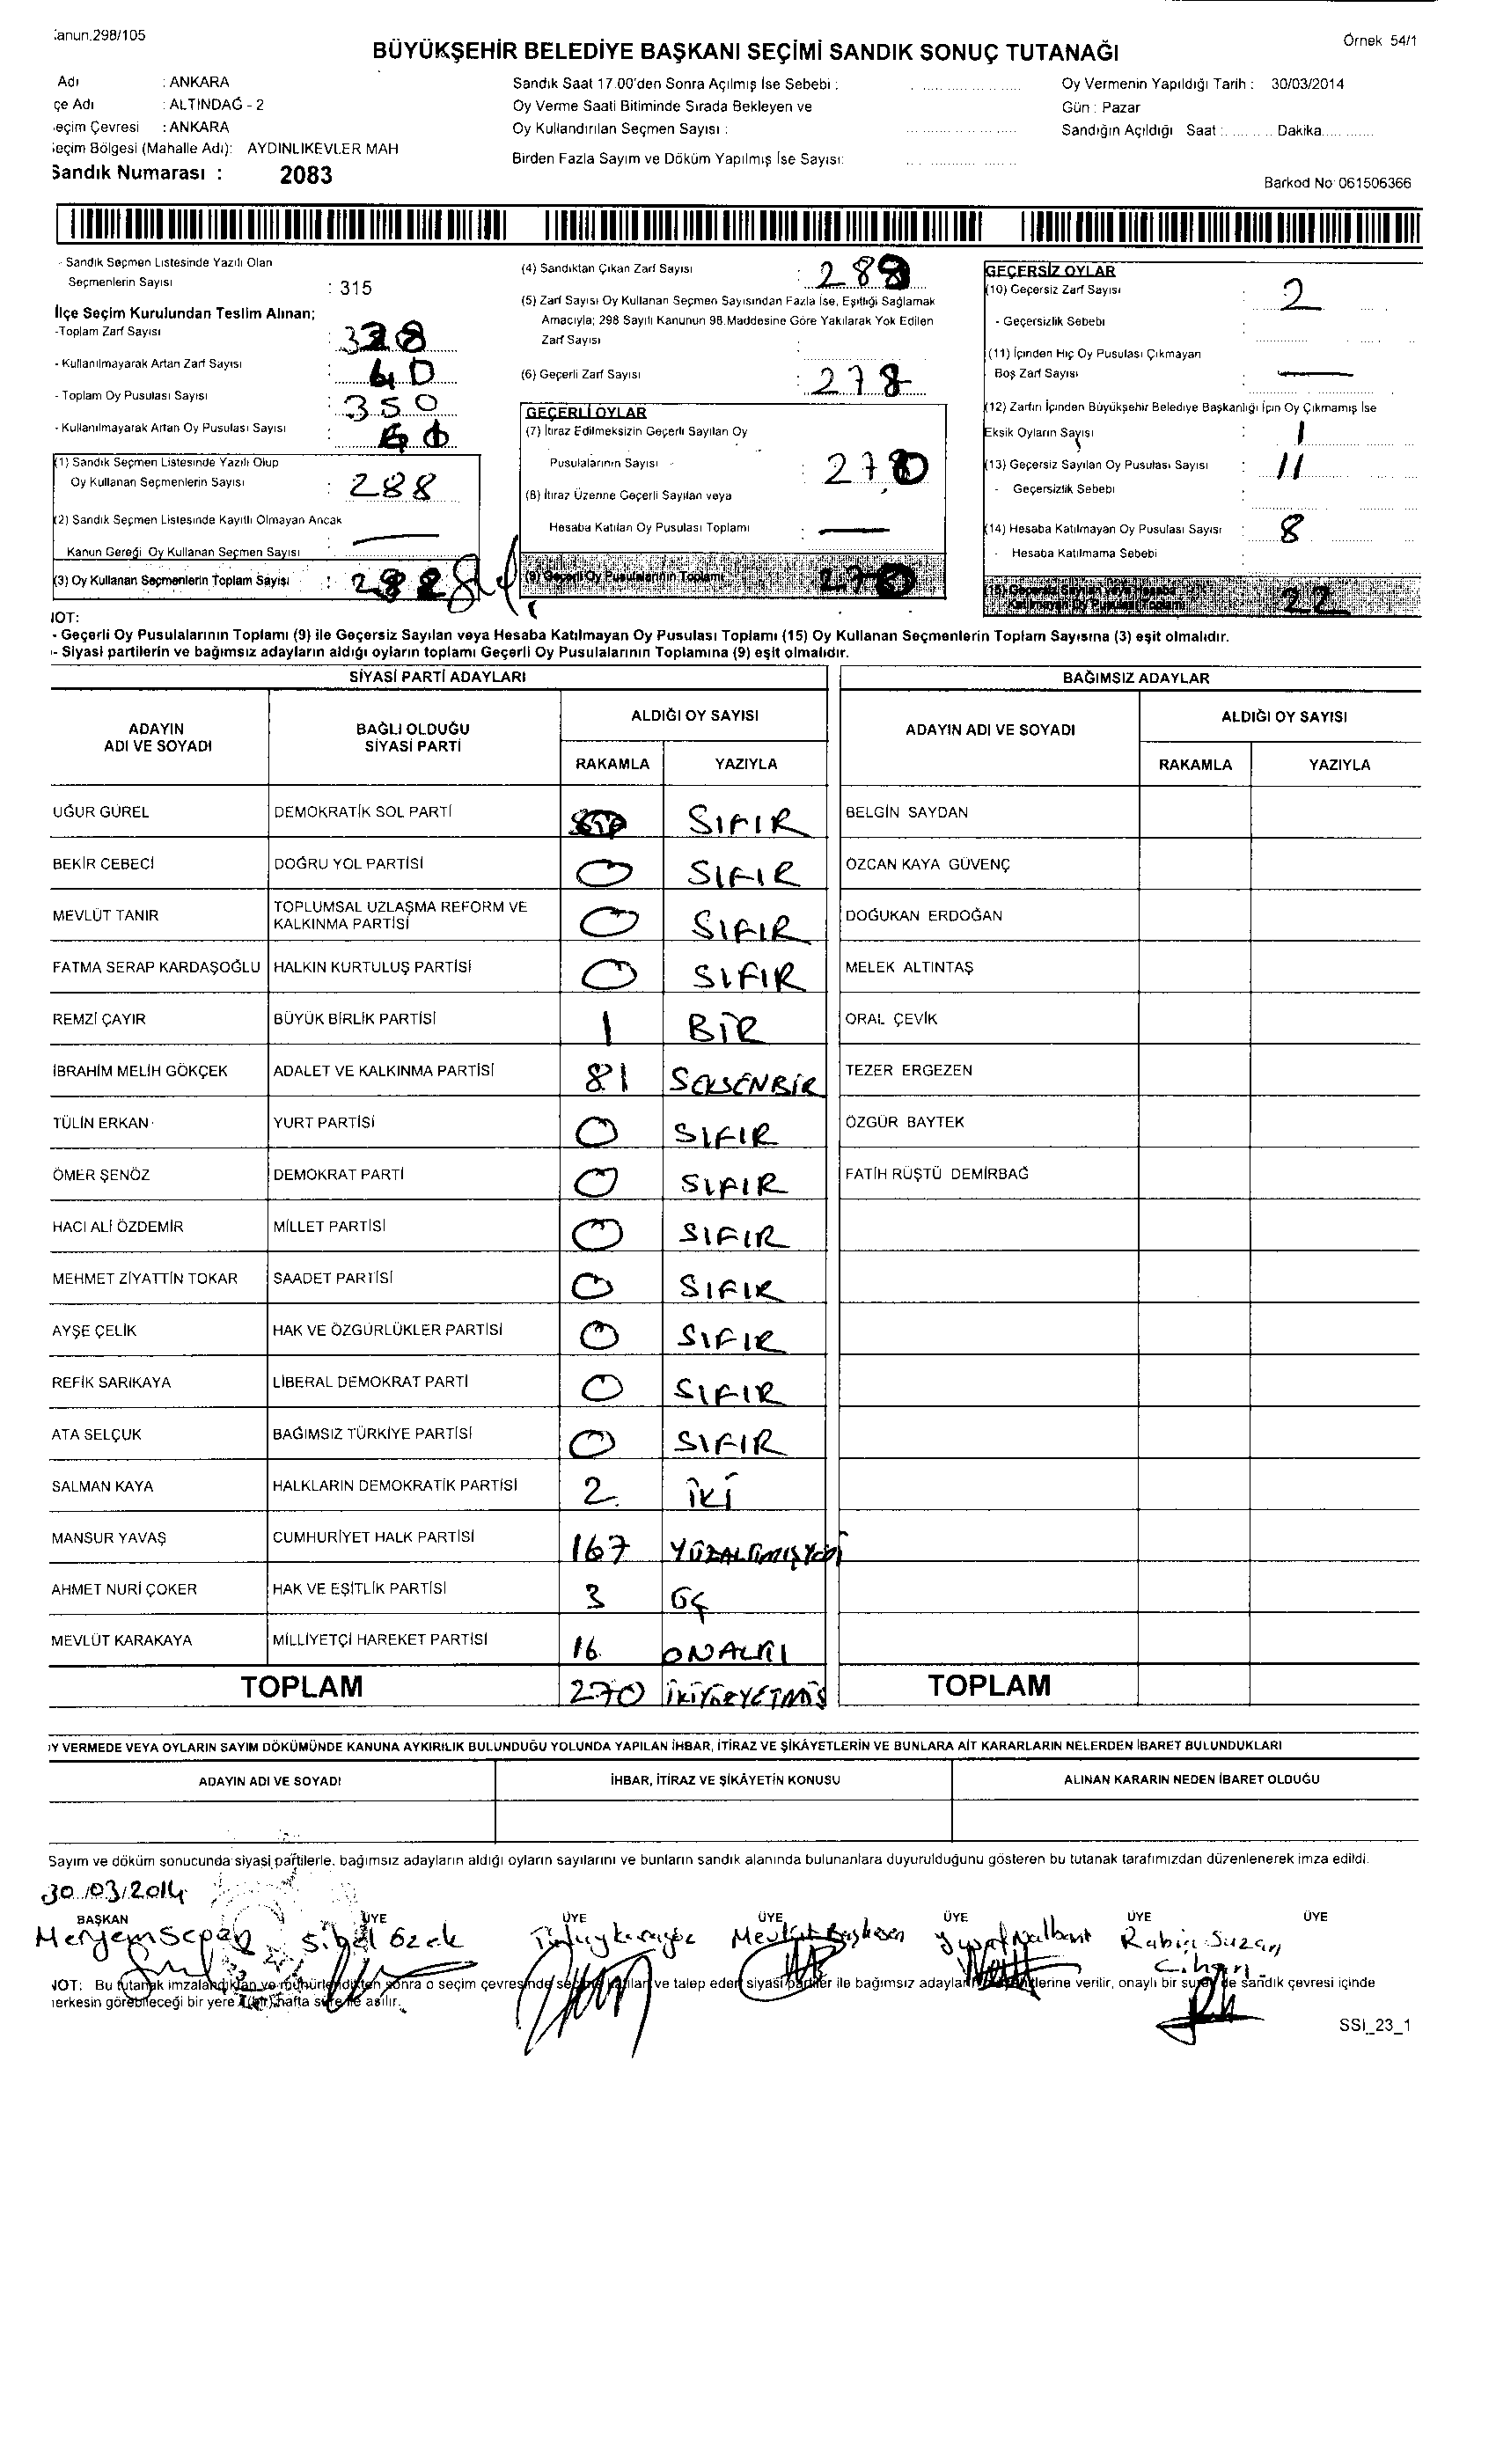 Kanun.298/105
Örnek 54/1
BÜYÜKŞEHİR BELEDİYE BAŞKANI SEÇİMİ SANDIK SONUÇ TUTANAĞI
Adı : ANKARA
çe Adı : ALTINDAĞ - 2
eçim Çevresi : ANKARA
eçim Bölgesi (Mahalle Adı): AYDINLIKEVLER MAH
Sandık Numarası : 2083
Sandık Saat 17.00'den Sonra Açılmış İse Sebebi :
Oy Verme Saati Bitiminde Sırada Bekleyen ve
Oy Kullandırılan Seçmen Sayısı :
Birden Fazla Sayım ve Döküm Yapılmış İse Sayısı:
Oy Vermenin Yapıldığı Tarih : 30/03/2014
Gün : Pazar
Sandığın Açıldığı Saat : ......... Dakika............
Barkod No 061506366
- Sandık Seçmen Listesinde Yazılı Olan
Seçmenlerin Sayısı : 315
İlçe Seçim Kurulundan Teslim Alınan;
-Toplam Zarf Sayısı : 328
- Kullanılmayarak Artan Zarf Sayısı : 40
- Toplam Oy Pusulası Sayısı : 350
- Kullanılmayarak Artan Oy Pusulası Sayısı :
(1) Sandık Seçmen Listesinde Yazılı Olup
Oy Kullanan Seçmenlerin Sayısı : 288
(2) Sandık Seçmen Listesinde Kayıtlı Olmayan Ancak
Kanun Gereği Oy Kullanan Seçmen Sayısı : —
(3) Oy Kullanan Seçmenlerin Toplam Sayısı : 288
(4) Sandıktan Çıkan Zarf Sayısı : 288
(5) Zarf Sayısı Oy Kullanan Seçmen Sayısından Fazla İse, Eşitliği Sağlamak
Amacıyla; 298 Sayılı Kanunun 98.Maddesine Göre Yakılarak Yok Edilen
Zarf Sayısı :
(6) Geçerli Zarf Sayısı : 278
GEÇERLİ OYLAR
(7) İtiraz Edilmeksizin Geçerli Sayılan Oy
Pusulalarının Sayısı : 270
(8) İtiraz Üzerine Geçerli Sayılan veya
Hesaba Katılan Oy Pusulası Toplamı : —
(9) Geçerli Oy Pusulalarının Toplamı 270
GEÇERSİZ OYLAR
(10) Geçersiz Zarf Sayısı : 2
- Geçersizlik Sebebi :
(11) İçinden Hiç Oy Pusulası Çıkmayan
Boş Zarf Sayısı : —
(12) Zarfın İçinden Büyükşehir Belediye Başkanlığı İçin Oy Çıkmamış İse
Eksik Oyların Sayısı : 1
(13) Geçersiz Sayılan Oy Pusulası Sayısı : 11
- Geçersizlik Sebebi :
(14) Hesaba Katılmayan Oy Pusulası Sayısı : 8
- Hesaba Katılmama Sebebi :
(15) Geçersiz Sayılan veya Hesaba
Katılmayan Oy Pusulası Toplamı 22
NOT:
- Geçerli Oy Pusulalarının Toplamı (9) ile Geçersiz Sayılan veya Hesaba Katılmayan Oy Pusulası Toplamı (15) Oy Kullanan Seçmenlerin Toplam Sayısına (3) eşit olmalıdır.
- Siyasi partilerin ve bağımsız adayların aldığı oyların toplamı Geçerli Oy Pusulalarının Toplamına (9) eşit olmalıdır.
SİYASİ PARTİ ADAYLARI
BAĞIMSIZ ADAYLAR
ADAYIN ADI VE SOYADI
BAĞLI OLDUĞU SİYASİ PARTİ
ALDIĞI OY SAYISI
RAKAMLA YAZIYLA
ADAYIN ADI VE SOYADI
ALDIĞI OY SAYISI
RAKAMLA YAZIYLA
UĞUR GÜREL DEMOKRATİK SOL PARTİ SIFIR BELGİN SAYDAN
BEKİR CEBECİ DOĞRU YOL PARTİSİ 0 SIFIR ÖZCAN KAYA GÜVENÇ
MEVLÜT TANIR TOPLUMSAL UZLAŞMA REFORM VE KALKINMA PARTİSİ 0 SIFIR DOĞUKAN ERDOĞAN
FATMA SERAP KARDAŞOĞLU HALKIN KURTULUŞ PARTİSİ 0 SIFIR MELEK ALTINTAŞ
REMZİ ÇAYIR BÜYÜK BİRLİK PARTİSİ 1 BİR ORAL ÇEVİK
İBRAHİM MELİH GÖKÇEK ADALET VE KALKINMA PARTİSİ 81 SEKSENBİR TEZER ERGEZEN
TÜLİN ERKAN YURT PARTİSİ 0 SIFIR ÖZGÜR BAYTEK
ÖMER ŞENÖZ DEMOKRAT PARTİ 0 SIFIR FATİH RÜŞTÜ DEMİRBAĞ
HACI ALİ ÖZDEMİR MİLLET PARTİSİ 0 SIFIR
MEHMET ZİYATTİN TOKAR SAADET PARTİSİ 0 SIFIR
AYŞE ÇELİK HAK VE ÖZGÜRLÜKLER PARTİSİ 0 SIFIR
REFİK SARIKAYA LİBERAL DEMOKRAT PARTİ 0 SIFIR
ATA SELÇUK BAĞIMSIZ TÜRKİYE PARTİSİ 0 SIFIR
SALMAN KAYA HALKLARIN DEMOKRATİK PARTİSİ 2 İKİ
MANSUR YAVAŞ CUMHURİYET HALK PARTİSİ 167 YÜZALTMIŞYEDİ
AHMET NURİ ÇOKER HAK VE EŞİTLİK PARTİSİ 3 ÜÇ
MEVLÜT KARAKAYA MİLLİYETÇİ HAREKET PARTİSİ 16 ONALTI
TOPLAM 270 İKİYÜZYETMİŞ TOPLAM
OY VERMEDE VEYA OYLARIN SAYIM DÖKÜMÜNDE KANUNA AYKIRILIK BULUNDUĞU YOLUNDA YAPILAN İHBAR, İTİRAZ VE ŞİKÂYETLERİN VE BUNLARA AİT KARARLARIN NELERDEN İBARET BULUNDUKLARI
ADAYIN ADI VE SOYADI İHBAR, İTİRAZ VE ŞİKÂYETİN KONUSU ALINAN KARARIN NEDEN İBARET OLDUĞU
Sayım ve döküm sonucunda siyasi partilerle, bağımsız adayların aldığı oyların sayılarını ve bunların sandık alanında bulunanlara duyurulduğunu gösteren bu tutanak tarafımızdan düzenlenerek imza edildi.
30/03/2014
BAŞKAN ÜYE ÜYE ÜYE ÜYE ÜYE ÜYE
Meryem Sibel Özek Mevlüt Yusuf Nalbant Rabia Suzan
Cihan
NOT: Bu tutanak imzalandıktan ve mühürlendikten sonra o seçim çevresinde seçime katılan ve talep eden siyasi partiler ile bağımsız adayların temsilcilerine verilir, onaylı bir sureti de sandık çevresi içinde
herkesin görebileceği bir yere 1(bir) hafta süre ile asılır.
SSI_23_1